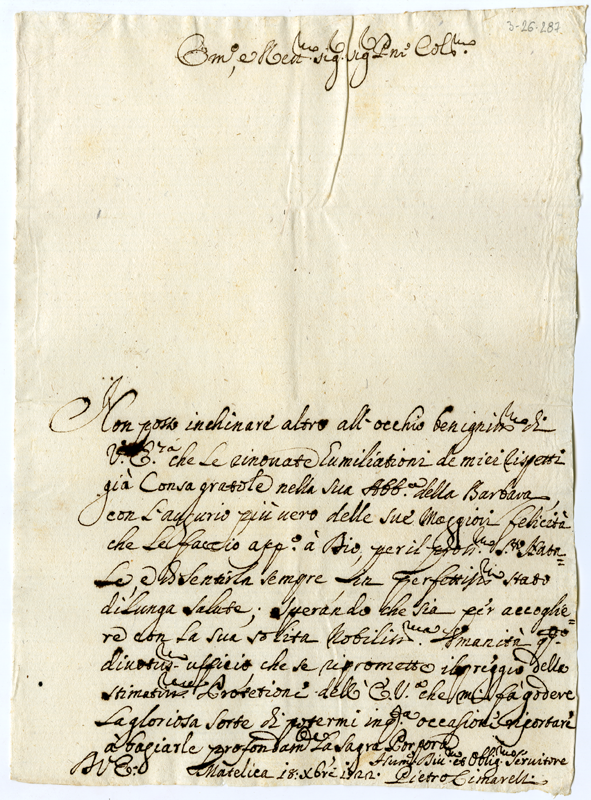 3-26-287
Em.º, e Red.mo sig. sig. Pne Col.mo
Non posso inchinare altro all'occhio benigniss.mo di
V.E.za che le rinouate humiliationi de miei rispetti
già Consagratole nella sua Abb.a della Barbara
con l'augurio più vero delle sue Maggiori felicità
che Le faccio app.o à Dio, per il pross.mo S.to Nata=
le, e di sentirla sempre in perfettiss.mo stato
di lunga salute; sperando che sia per accoglie=
re con la sua solita Nobiliss.ma Umanità q.to
diuotiss.mo ufficio che se ripromette il preggio della
stimatiss.ma Protetione dell'E.V.a che mi fà godere
la gloriosa sorte di potermi in q.ta occasione riportare
à bagiarle profondam.te la sagra Porpora
D V E. Hum.mo Diu.mo et Oblig.mo Seruitore
Matelica 18: Xbre 1722. Pietro Cimarelli